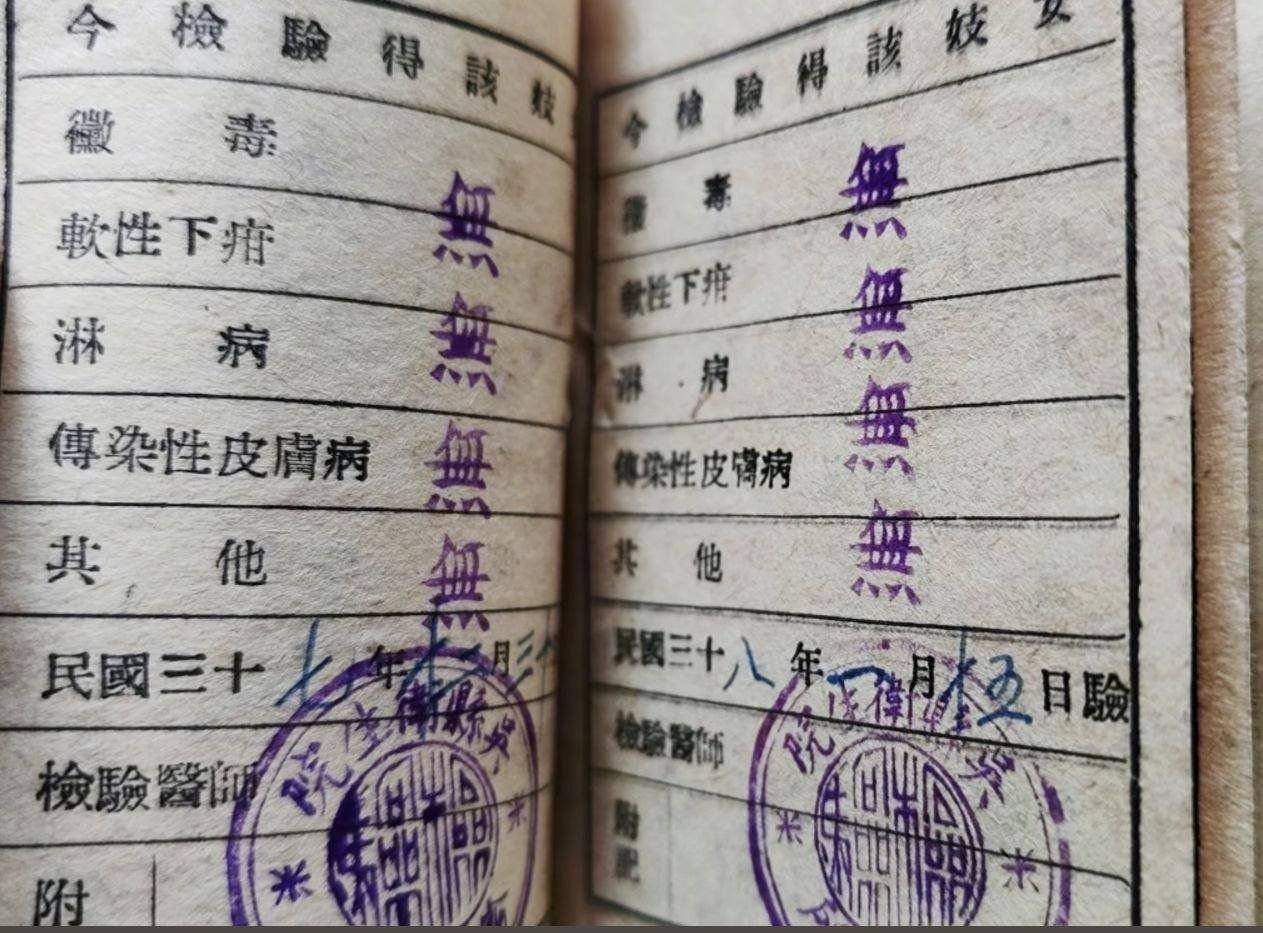 今檢驗得該妓
黴毒 無
軟性下疳 無
淋病 無
傳染性皮膚病 無
其他
民國三十七年十一月三十
檢驗醫師
附
吳縣衛生院
今檢驗得該妓女
黴毒 無
軟性下疳 無
淋病 無
傳染性皮膚病 無
其他
民國三十八年一月十五日驗
檢驗醫師
附記
吳縣衛生院